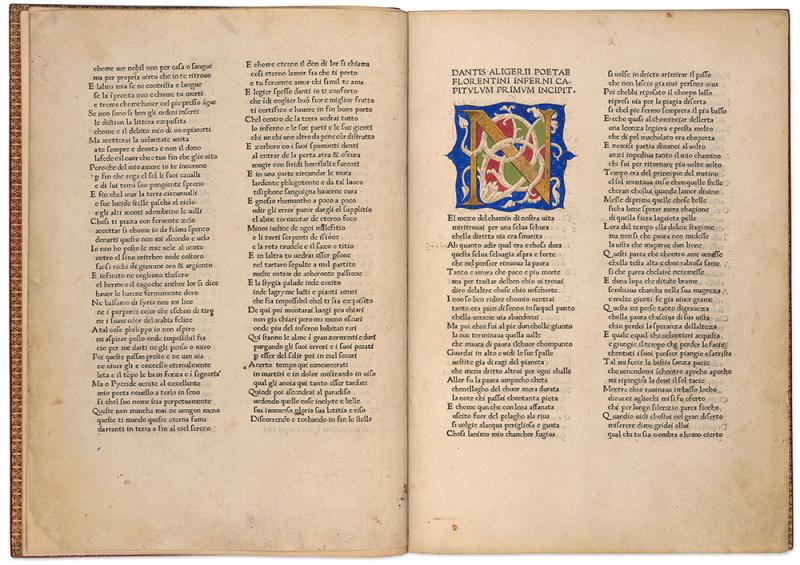 cheme uer nobil non per casa o sangue
ma per propria uirtu che in te ritrouo
E lalma mia se ne contrista e langue
se la spronta non echome tu morti
e treme chome hauer col pie presso ague
Se non sono si ben gli ordini inserti
le diction la littera exquisita
chome e il debito mio di compiacerti
Ma accettarai la uoluntate unita
a te sempre e deuota e non il dono
la fede el cuor che tuo fin che glie uita
Pero che del mio amore io te incorono
fin che rega el sol li suoi caualli
e di lui terra suo pongiente sprono
E fin chel mar la terra circunualli
e sue lucide stelle pascha el cielo
e gli alti monti adombrino le ualli
Chosi ti piaza con feruente zelo
accettar si chome io da fama spento
donarti questo non mi ascondo e uelo
Io non ho posto le mie uele al uento
entro el sino eritheo onde costoro
sarsi richi di giemme oro & argiento
E infinito ne cogliono thesoro
el hermo e il ragoche anchor lo si dice
hauer le harene fermamente doro
Ne balsamo di syria non mi lice
ne i purpurei color che eschon di tiro
ne i suaui odor del arabia felice
A tal cose philippo io non aspiro
ne aspirar posso onde impossibil fia
cio per me darti ne gli penso o miro
Poi queste passan presto e ne uan uia
ne uiuer gli e concesso eternalmente
leta e il tempo le ha in forza e i signoria
Ma o Pyctride uenite al excellente
mio poeta nouello a torlo in seno
si chel suo nome sia perpetuamente
Queste non mancha mai ne uengon meno
queste ti mando queste eterna fama
darranti in terra a fin al ciel sereno
E chome eterno il don di lor si chiama
cosi eterno lamor sia che ti porto
e tu feruente amor chi simil te ama
E legier spesso danti io ti conforto
che idi coglier buo fiore miglior frutto
e ti certifico e hauere in fin buon porto
Chel centro de la terra uedrai tutto
lo inferno e le sue parti e le sue gienti
chi un chi uno altro da pene esser distrutto
E zerbero con i suoi spumanti denti
al entrar de la porta atra & oscura
mugir con stridi horribili e furenti
E in una parte circundar le mura
lardente phlegetonte e da tal luoco
tisiphone sanguigna hauerne cura
E gnosio rhamantho a poco a poco
udir gli error punir dargli il supplitio
el alme tormentar de eterno foco
Minos iudice de ogni malefitio
e li torti serpenti de issione
e la rota crudele e il saxo e titio
E in laltra tu uedrai esser psone
nel tartaro sepulte a mal partito
meste entrar de acheronte passione
E la stygia palude inde cocito
inde lagryme lucti e pianti amari
che fia impossibil chel tu sia exquisito
De qui poi montarai luogi piu chiari
non gia chiari pero ma meno oscuri
onde piu del inferno habitan rari
Qui stanno le alme i gran tormenti e duri
purgando gli suoi errori e i suoi peccati
per esser del salir poi in ciel securi
A certo tempo qui concerorati
in martiri e in dolor mostrando in uiso
qual gli anoia qui tanto esser tardati
Quindi poi ascendrai al paradiso
uedendo quelle cose inclyte e belle
sua immensa gloria sua letitia e riso
Discorrendo e tochando in fin le stelle
DANTIS ALIGERII POETAE
FLORENTINI INFERNI CA-
PITVLVM PRIMVM INCIPIT.
N
El mezo del chamin di nostra uita
mi ritrouai per una selua schura
chella diritta uia era smarita
Ah quanto adir qual era e chosa dura
questa selua seluagia aspra e forte
che nel pensier rinuoua la paura
Tanto e amara che poco e piu morte
ma per tractar delben chio ui trouai
diro delaltre chose chio uoschorte
I non so ben ridire chomio uentrai
tanto era pien di sonno in su quel punto
chella uerace uia abandonai
Ma poi chio fui al pie dun cholle giunto
la oue terminaua quella ualle
che mauea di paura il chuor chompunto
Guardai in alto e uidi le sue spalle
uestite gia di raggi del pianeta
che mena diritto altrui per ogni challe
Allor fu la paura umpocho cheta
chenellagho del chuor mera durata
la nocte chi passai chontanta pieta
E chome quei che con lena affanata
uscito fuor del pelagho ala riua
si uolgie alacqua perigliosa e guata
Chosi lanimo mio chanchor fugiua
si uolse in drieto arimirar il passo
che non lascio gia mai persona uiua
Poi chebbi riposato il chorpo lasso
ripresi uia per la piagia diserta
si chel pie fermo sempre era il piu basso
Et echo quasi al chominciar dellerta
una leonza legiera e presta molto
che di pel machulato era choperta
E nomisi partia dinanci al uolto
anzi inpediua tanto il mio chamino
chi fui per ritornare piu uolte uolto
Tempo era del principio del mattino
el sol montaua insu chon quelle stelle
cheran chollui quando lamor diuino
Messe diprima quelle chose belle
sicha bene sperar mera chagione
di quella fiera lagaieta pelle
Lora del tempo ella dolcie stagione
ma non si che paura non midesse
la uista che maparue dun lione
Questi parea che chontro ame uenisse
cholla testa alta e chon rabiosa fame
si che parea chelaire netemesse
E duna lupa che ditutte brame
sembiaua charcha nella sua magreza
e molte gienti fe gia uiuer grame
Questa mi porse tanto digraueza
cholla paura chusciua di sua uista
chio perdei la speranza dellalteza
E quale e quel che uolentieri acquista
e giungie il tempo che perder lo facie
chentutti i suoi pensier piangie e satrista
Tal mi fecie la bestia sanza pacie
che uenendomi chontro apocho apocho
mi ripingieua la doue il sol tacie
Mentre chio ruuinaua imbasso locho
dinanci agliocchi mi si fu oferto
che per lungo silenzio parea fiocho
Quando uidi chostui nel gran diserto
miserere di me gridai allui
qual chi tu sia o ombra o homo cierto